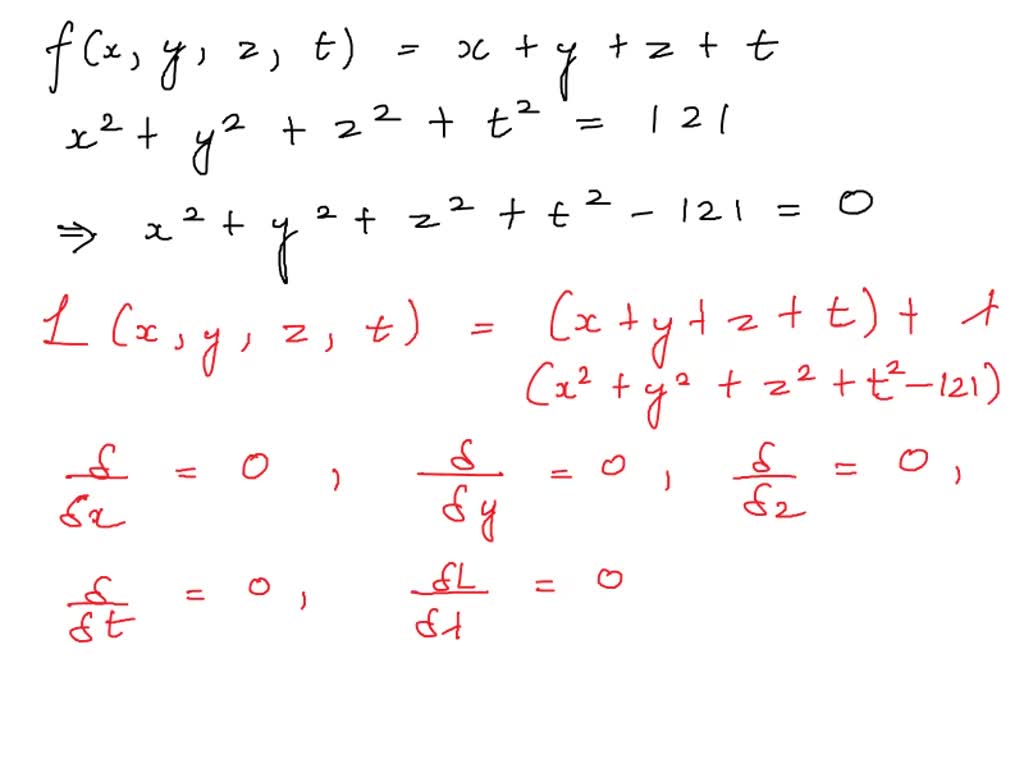 f(x, y, z, t) = x + y + z + t
x² + y² + z² + t² = 121
⇒ x² + y² + z² + t² - 121 = 0
L (x, y, z, t) = (x + y + z + t) + λ
(x² + y² + z² + t² - 121)
δ/δx = 0 , δ/δy = 0 , δ/δz = 0 ,
δ/δt = 0 , δL/δλ = 0